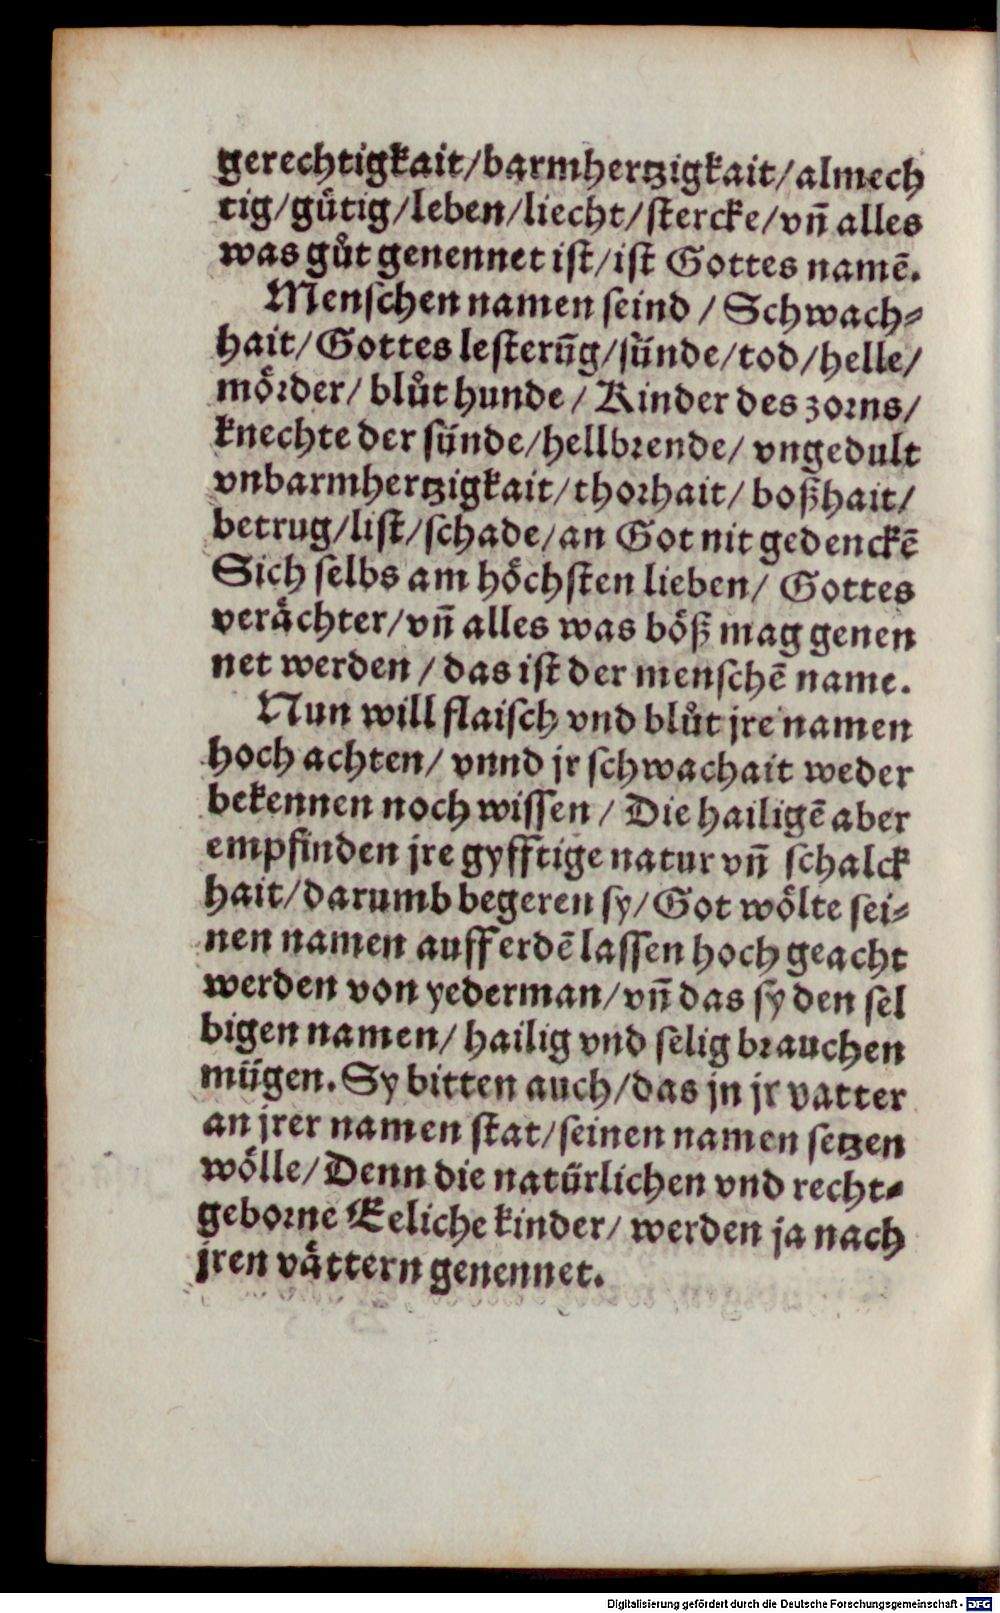 gerechtigkait/barmhertzigkait/almech
tig/gütig/leben/liecht/stercke/vñ alles
was gůt genennet ist/ist Gottes namẽ.
Menschen namen seind / Schwach⸗
hait/Gottes lesterũg/sünde/tod/helle/
mörder/ blůt hunde / Kinder des zorns/
knechte der sünde/hellbrende/ vngedult
vnbarmhertzigkait/thorhait/ boßhait/
betrug/list/schade/an Got nit gedenckẽ
Sich selbs am höchsten lieben/ Gottes
verächter/vñ alles was böß mag genen
net werden / das ist der menschẽ name.
Nun will flaisch vnd blůt jre namen
hoch achten/ vnnd jr schwachait weder
bekennen noch wissen / Die hailigẽ aber
empfinden jre gyfftige natur vñ schalck
hait/darumb begeren sy/Got wölte sei⸗
nen namen auff erdẽ lassen hoch geacht
werden von yederman/vñ das sy den sel
bigen namen/ hailig vnd selig brauchen
mügen. Sy bitten auch/das jn jr vatter
an jrer namen stat/seinen namen setzen
wölle/Denn die natürlichen vnd recht⸗
geborne Eeliche kinder/ werden ja nach
jren vättern genennet.
Digitalisierung gefördert durch die Deutsche Forschungsgemeinschaft - DFG